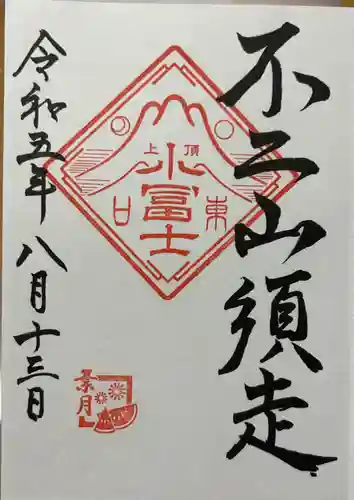 不二山須走
頂上
小富士
東口
令和五年八月十三日
葉月